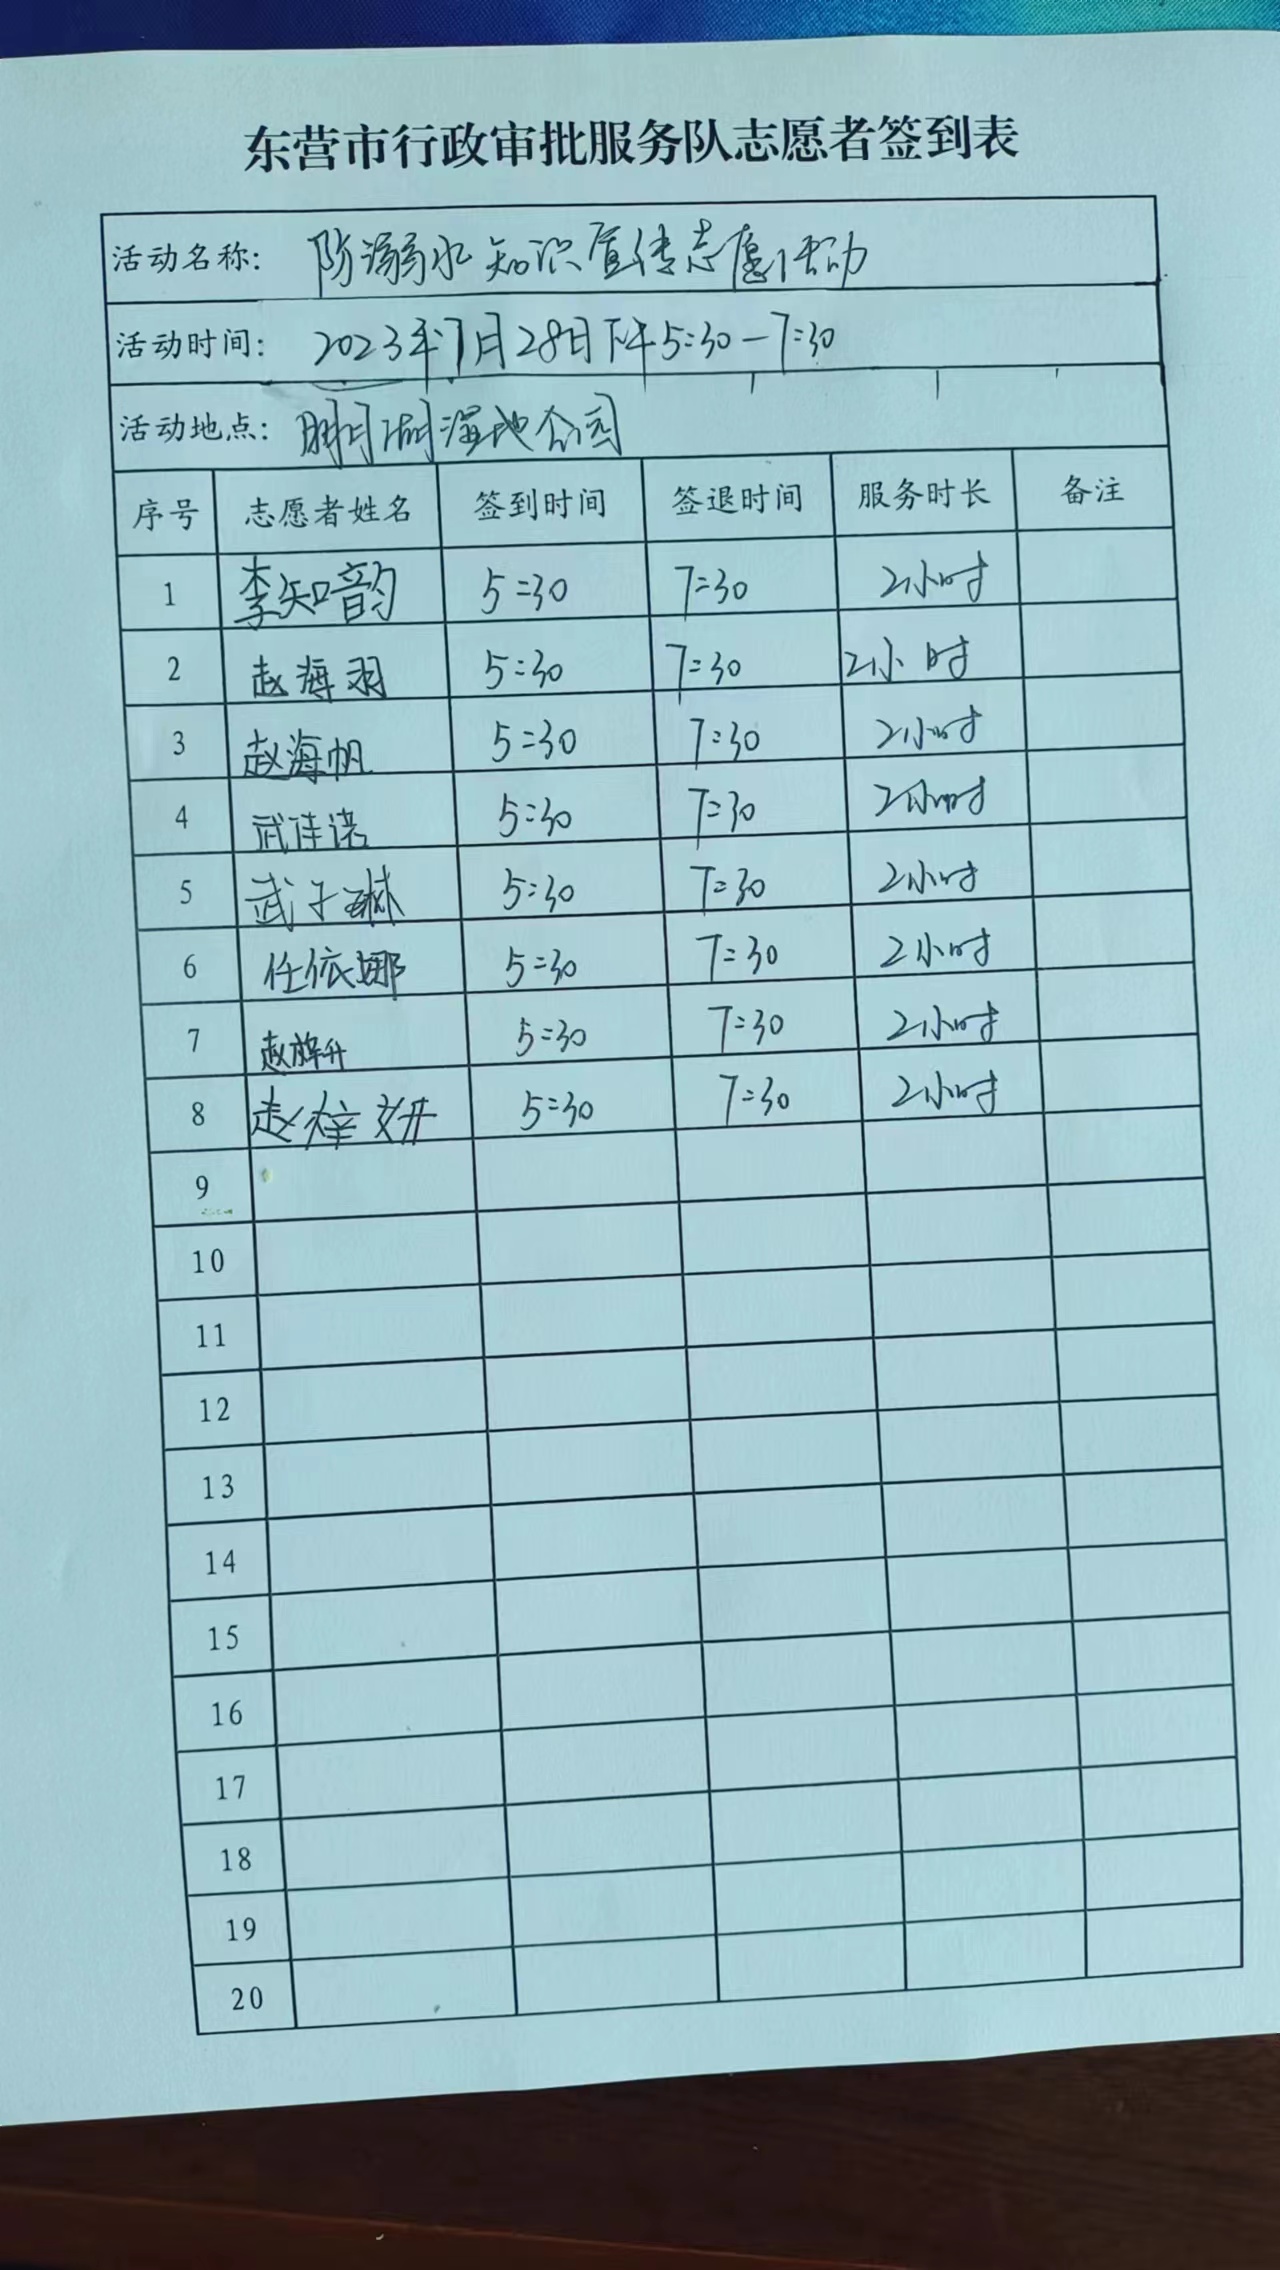 东营市行政审批服务队志愿者签到表
活动名称: 防溺水知识宣传志愿活动
活动时间: 2023年7月28日下午5:30-7:30
活动地点: 明月湖湿地公园
序号 志愿者姓名 签到时间 签退时间 服务时长 备注
1 李知韵 5:30 7:30 2小时
2 赵海羽 5:30 7:30 2小时
3 赵海帆 5:30 7:30 2小时
4 武佳诺 5:30 7:30 2小时
5 武子琳 5:30 7:30 2小时
6 任依娜 5:30 7:30 2小时
7 赵 升 5:30 7:30 2小时
8 赵梓妍 5:30 7:30 2小时
9
10
11
12
13
14
15
16
17
18
19
20